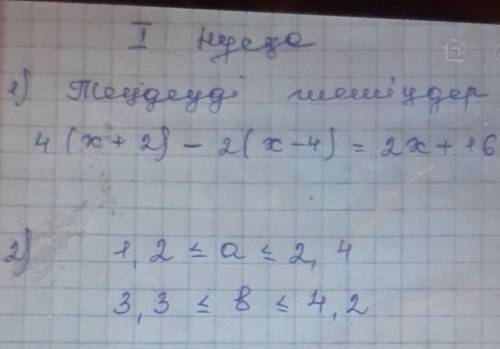 I нұсқа
1) Теңдеуді шешіңдер
4(x+2)-2(x-4)=2x+16
2) 1,2 ≤ a ≤ 2,4
3,3 ≤ в ≤ 4,2